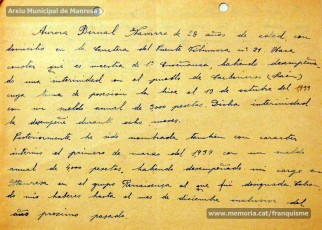 Arxiu Municipal de Manresa
Aurora Bernal Navarro de 28 años de edad, con
domicilio en la Carretera del Puente Vilumara nº 21. Hace
constar que es maestra de 1ª Enseñanza, habiendo desempeña-
do una interinidad en el pueblo de Carboneros (Jaén)
cuya toma de posesión la hice el 19 de octubre del 1933
con un sueldo anual de 3000 pesetas. Dicha interinidad
la desempeñé durante ocho meses.
Posteriormente he sido nombrada también con carácter
interino el primero de marzo del 1937 con un sueldo
anual de 4000 pesetas, habiendo desempeñado mi cargo en
Manresa en el grupo Renaixença al que fui designada
mis haberes hasta el mes de diciembre inclusive del
año próximo pasado.
www.memoria.cat/franquisme